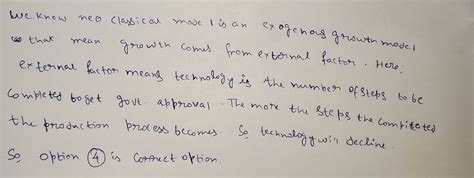 We know neo classical model is an exogenous growth model
that mean growth comes from external factor. Here,
external factor means technology is the number of steps to be
completed to get govt. approval. The more the steps the complicated
the production process becomes. So, technology will decline.
So, option ④ is correct option.